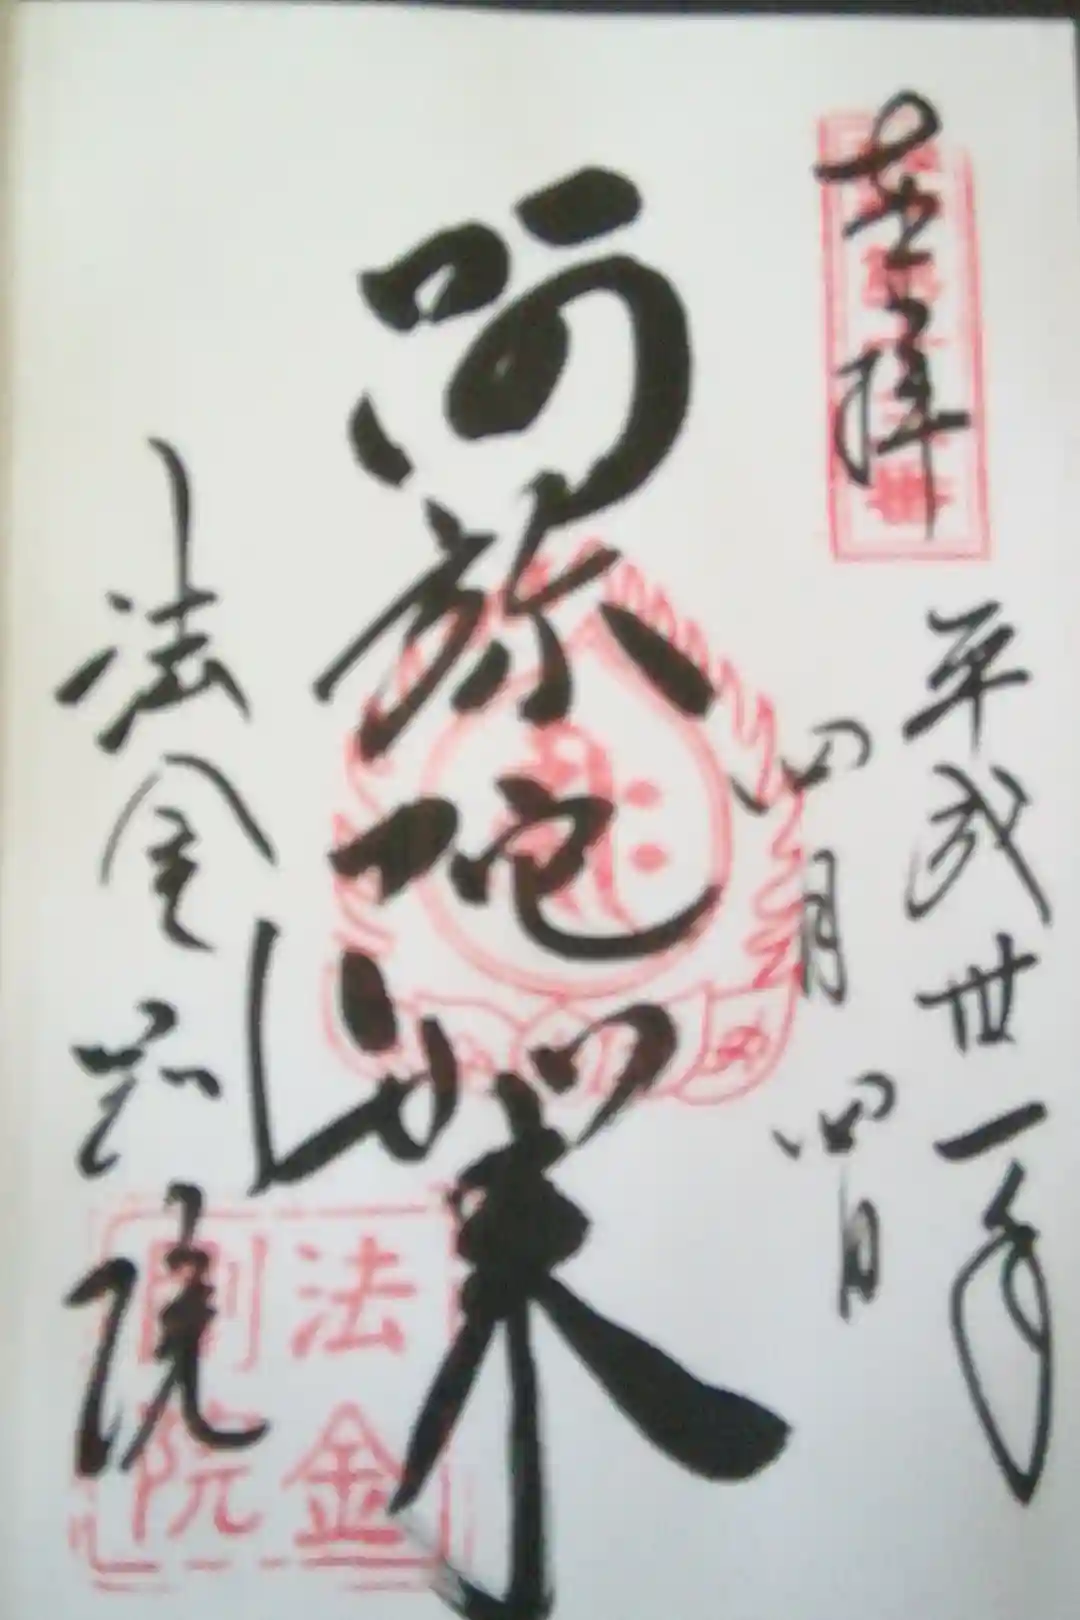 奉拝
平成卅一年
四月四日
阿弥陀如来
法金剛院
法金剛院